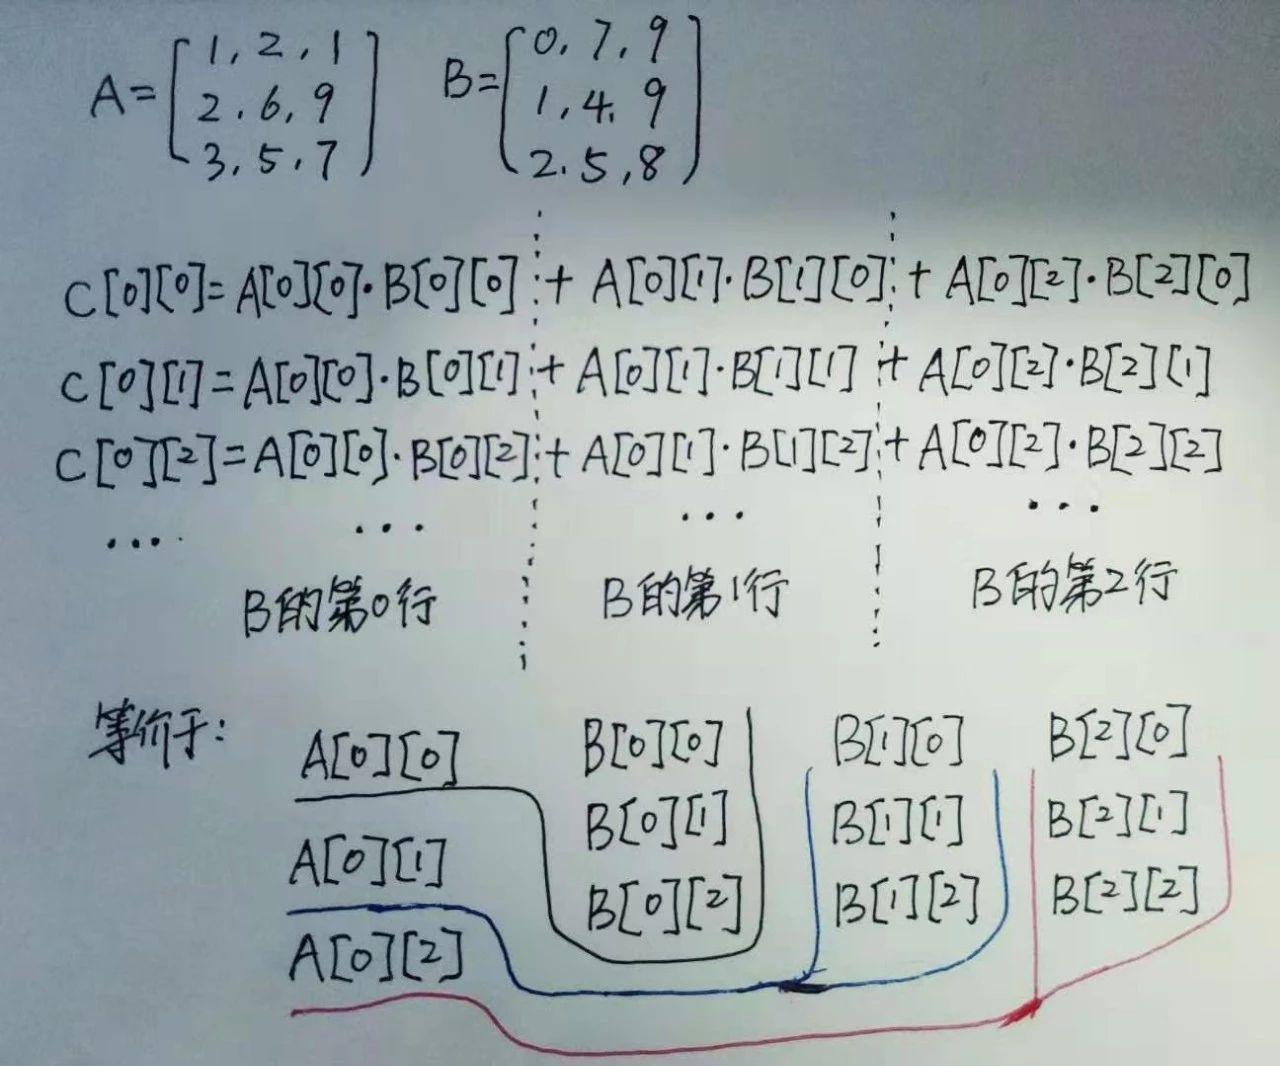 A= [1, 2, 1 B= [0, 7, 9
2, 6, 9 1, 4, 9
3, 5, 7] 2, 5, 8]
C[0][0]=A[0][0]·B[0][0] + A[0][1]·B[1][0] + A[0][2]·B[2][0]
C[0][1]=A[0][0]·B[0][1] + A[0][1]·B[1][1] + A[0][2]·B[2][1]
C[0][2]=A[0][0]·B[0][2] + A[0][1]·B[1][2] + A[0][2]·B[2][2]
... ... ... ...
B的第0行 B的第1行 B的第2行
等价于: A[0][0] B[0][0] B[1][0] B[2][0]
A[0][1] B[0][1] B[1][1] B[2][1]
A[0][2] B[0][2] B[1][2] B[2][2]